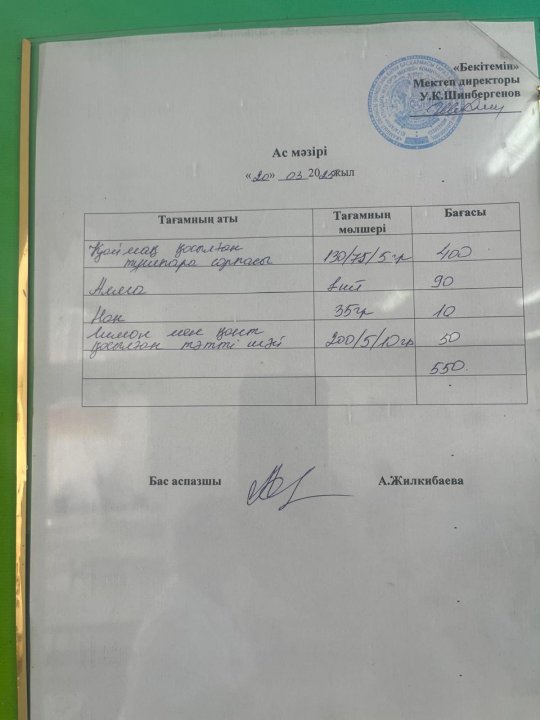 «Бекітемін»
Мектеп директоры
У.К.Шинбергенов
Ас мәзірі
«20» 03 2025жыл
Тағамның аты Тағамның мөлшері Бағасы
Қаймақ қосылған тұшпара сорпасы 130/75/5гр 400
Алма 90
Нан 35гр 10
Лимон мен қант қосылған тәтті шәй 200/5/10гр 50
550.
Бас аспазшы А.Жилкибаева